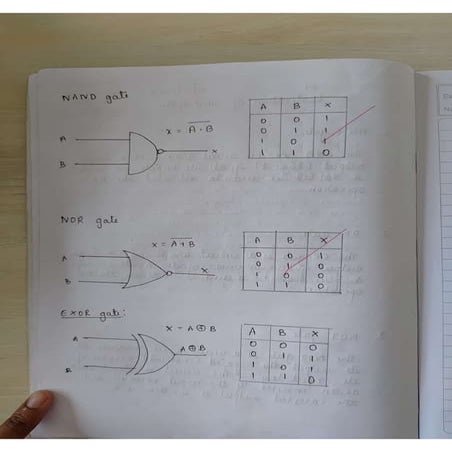 NAND gate
A B X
X = A·B
0 0 1
0 1 1
1 0 1
1 1 0
A
B
X
NOR gate
A B X
X = A+B
0 0 1
0 1 0
1 0 0
1 1 0
A
B
X
EXOR gate:
X = A⊕B
A B X
0 0 0
0 1 1
1 0 1
1 1 0
A
A⊕B
B